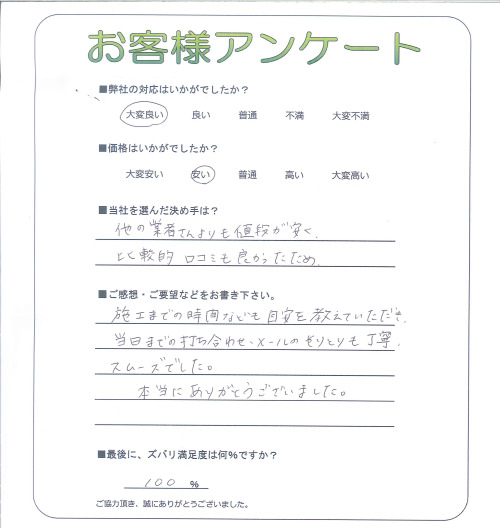 お客様アンケート
■弊社の対応はいかがでしたか？
大変良い 良い 普通 不満 大変不満
■価格はいかがでしたか？
大変安い 安い 普通 高い 大変高い
■当社を選んだ決め手は？
他の業者さんよりも値段が安く、
比較的 口コミも良かったため。
■ご感想・ご要望などをお書き下さい。
施工までの時間なども目安を教えていただき、
当日までの打ち合わせ、メールのやりとりも丁寧、
スムーズでした。
本当にありがとうございました。
■最後に、ズバリ満足度は何%ですか？
100 %
ご協力頂き、誠にありがとうございました。